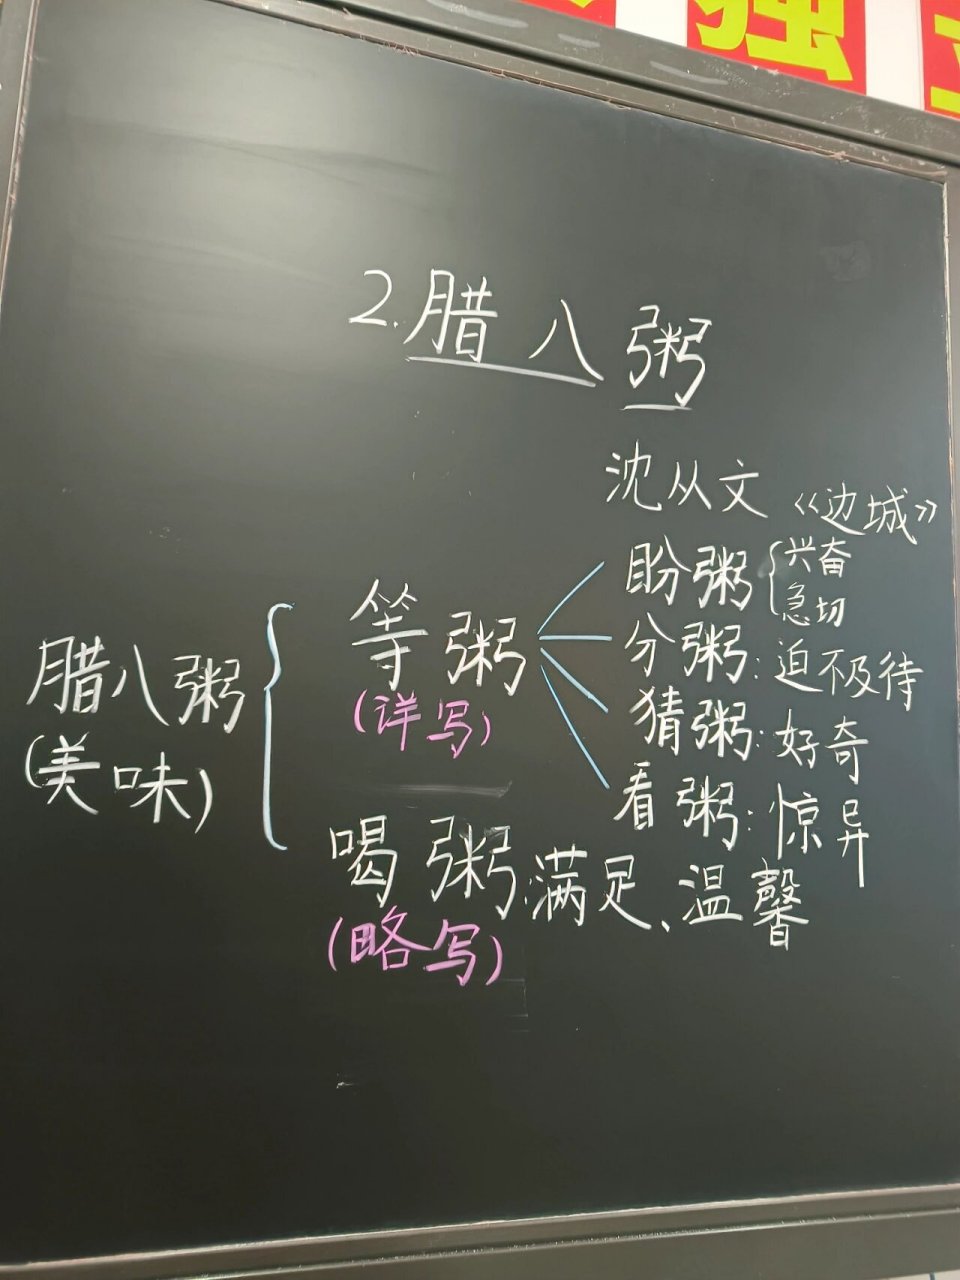 强
2.腊八粥
沈从文 《边城》
腊八粥
(美味)
等粥
(详写)
盼粥 兴奋
急切
分粥:迫不及待
猜粥:好奇
看粥:惊异
喝粥:满足、温馨
(略写)